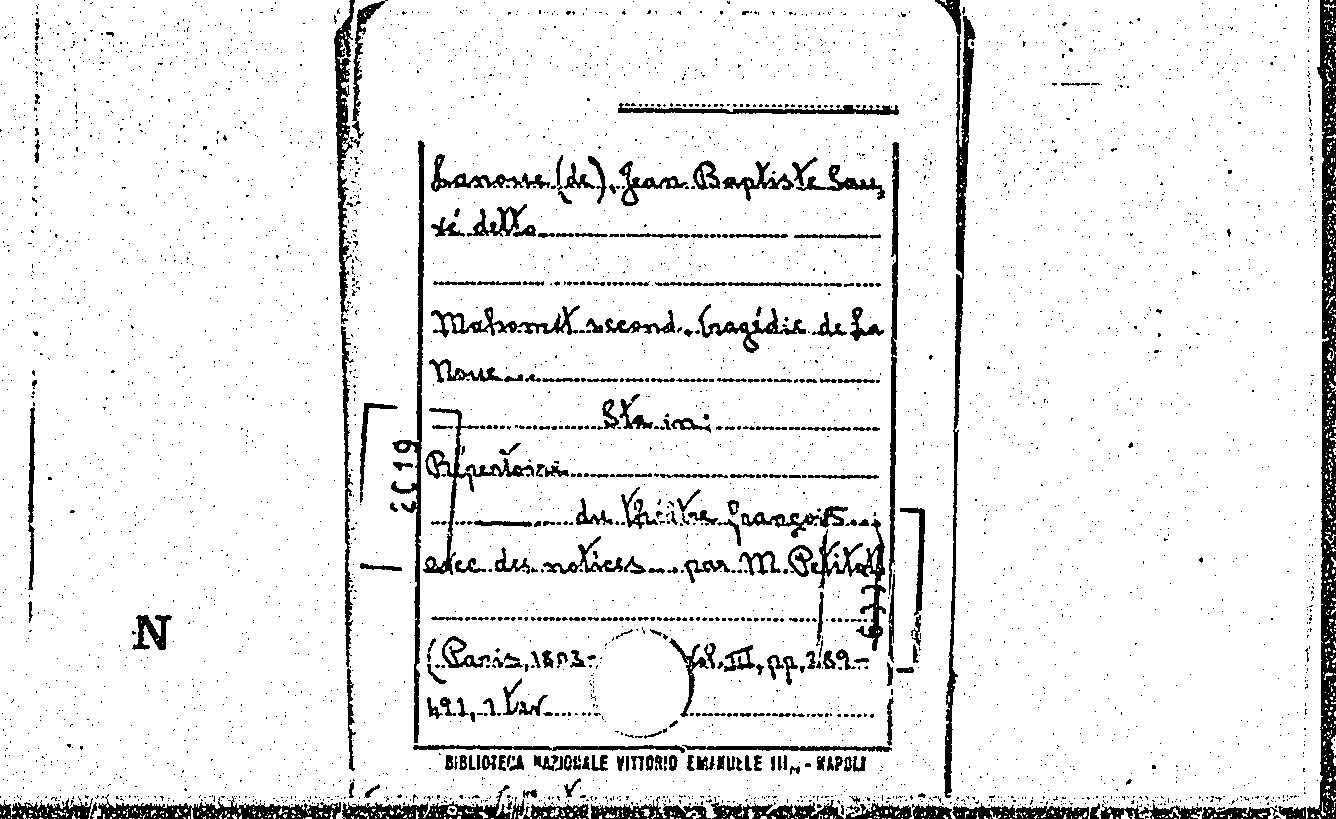 Lanoue (de), Jean Baptiste Sau,
vé detto
Mahomet second. tragédie de La
Noue...
Sta in:
Répertoire
du théâtre françois...
avec des notices... par M. Petitot
(Paris, 1803- vol. III, pp. 389-
491, 1 tav
BIBLIOTECA NAZIONALE VITTORIO EMANUELE III - NAPOLI
N